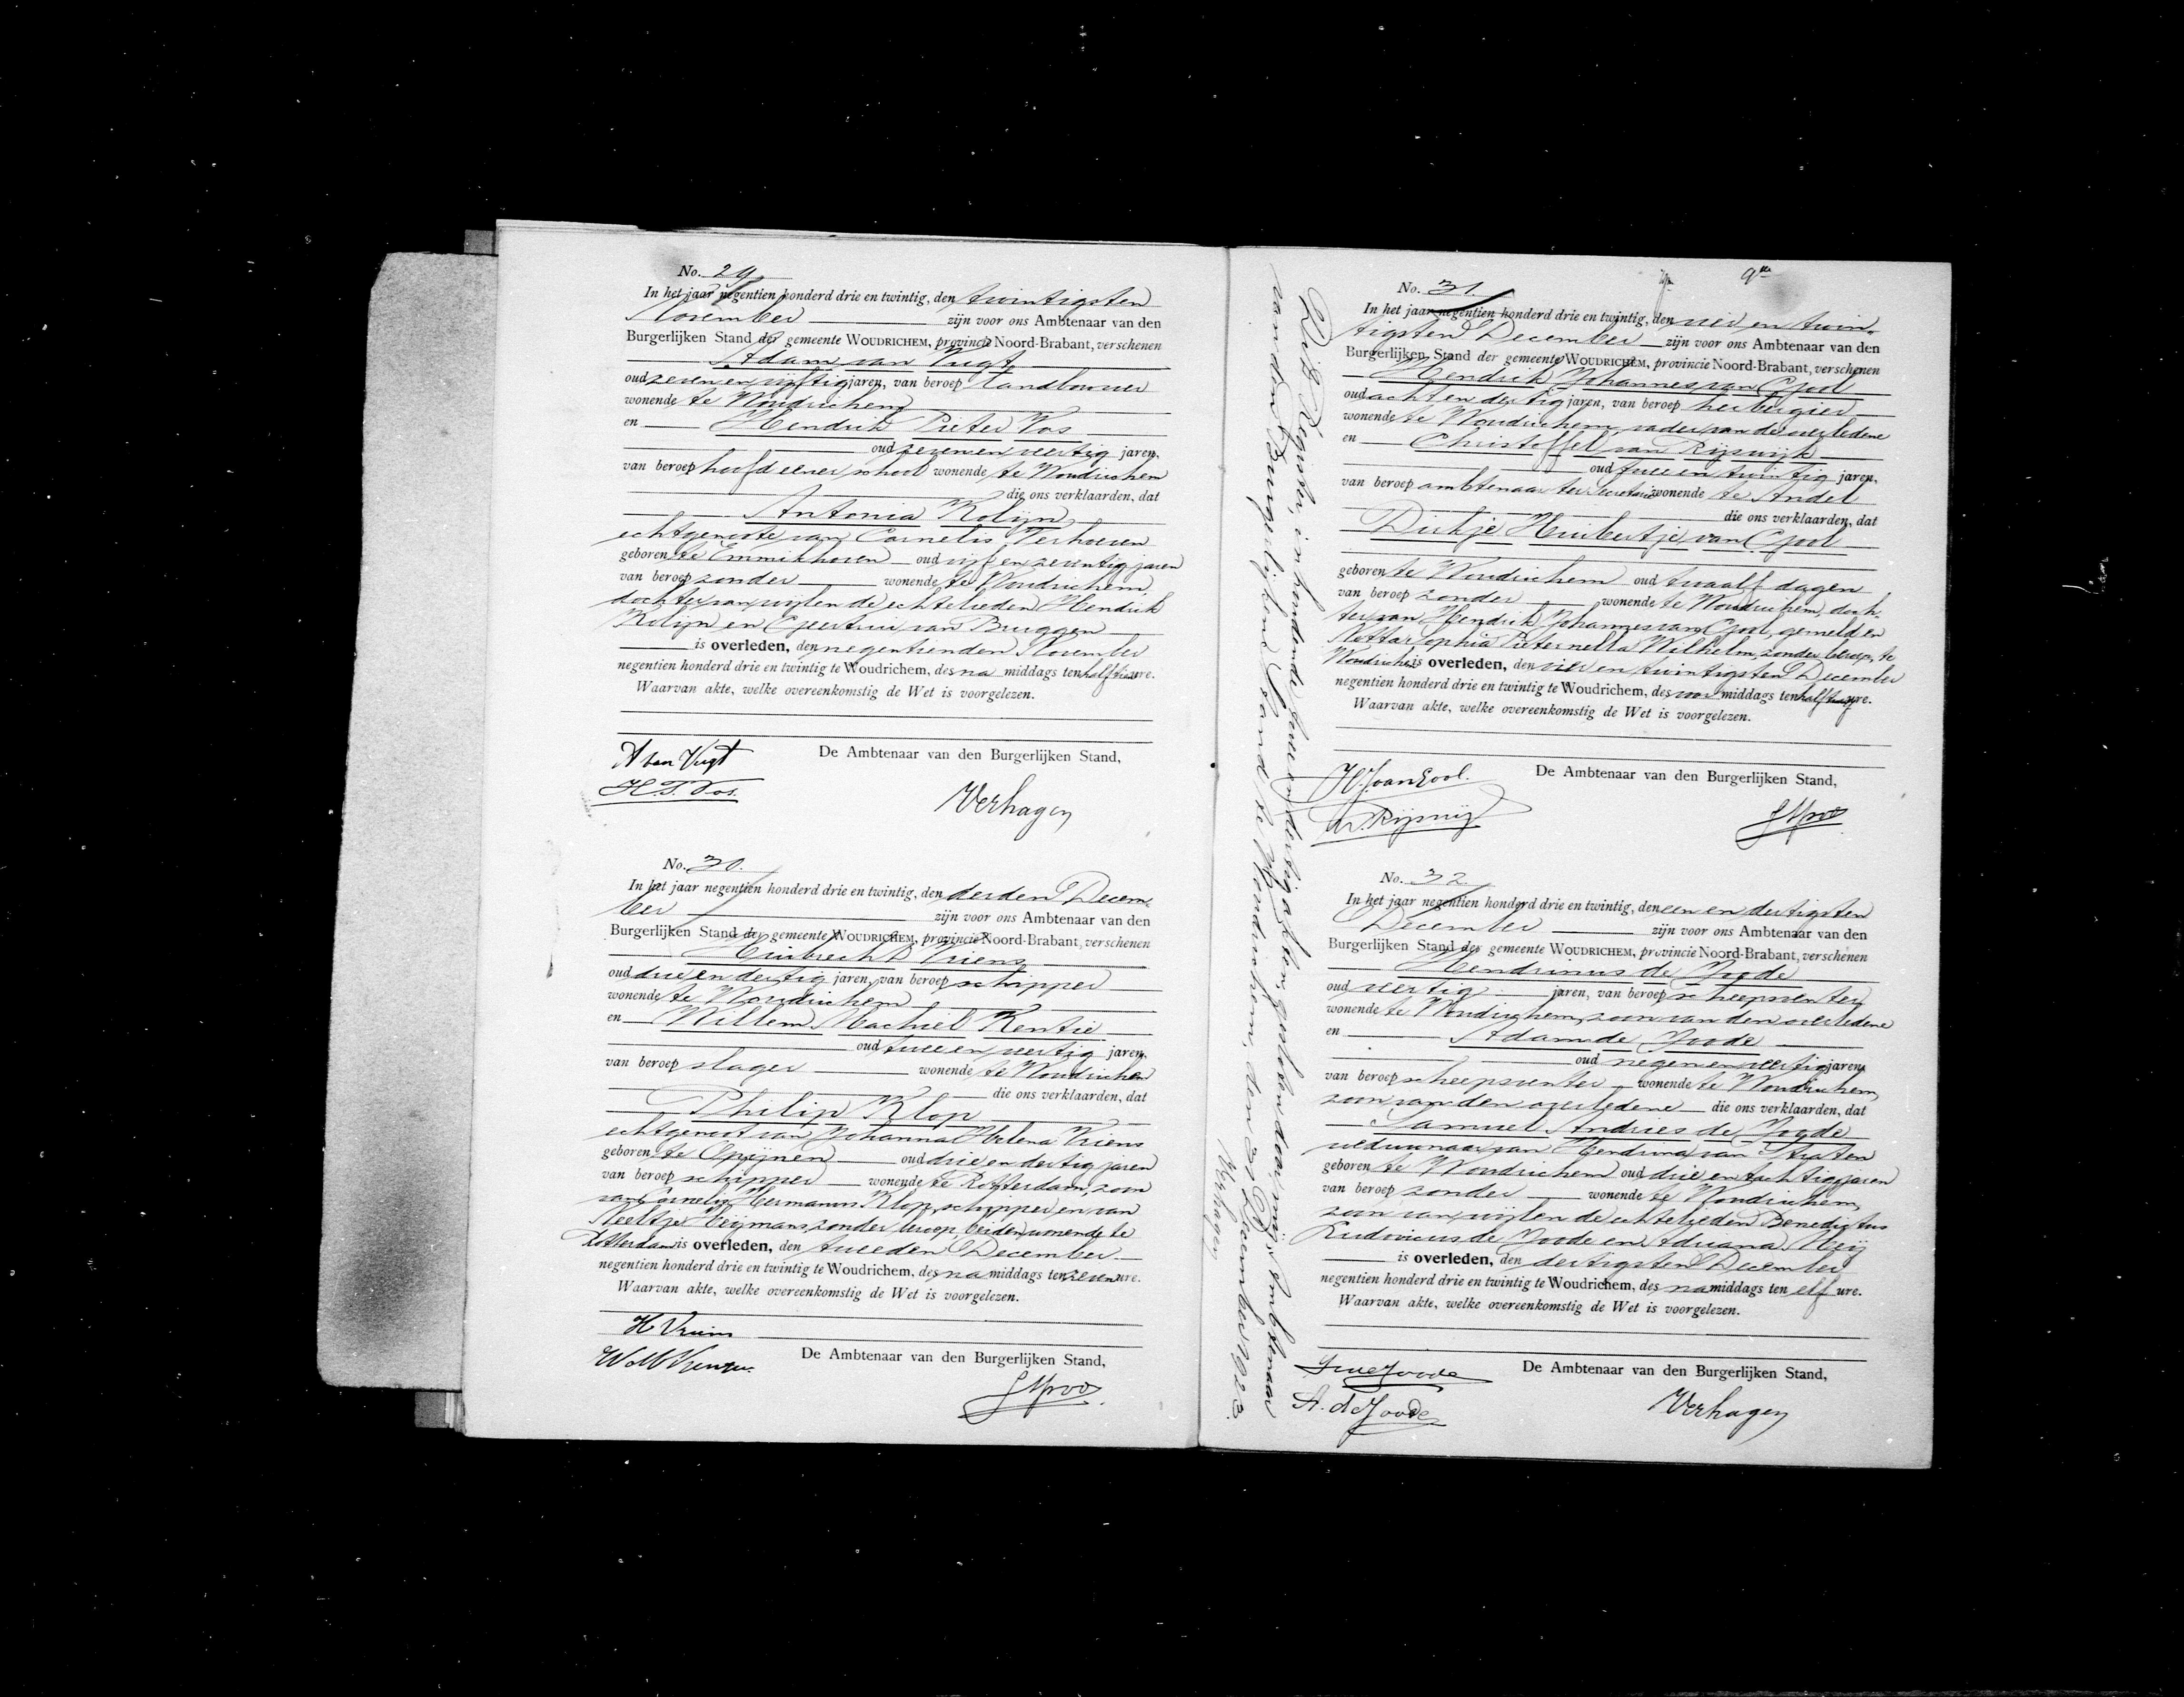 No. 29.
In het jaar negentien honderd drie en twintig, den twintigsten
November zijn voor ons Ambtenaar van den
Burgerlijken Stand der gemeente WOUDRICHEM, provincie Noord-Brabant, verschenen
Adam van Vugt
oud zeven en vijftig jaren, van beroep landbouwer
wonende te Woudrichem
en Hendrik Pieter Vos
oud zeven en veertig jaren,
van beroep hoofd eener school wonende te Woudrichem
die ons verklaarden, dat
Antonia Kolijn
echtgenoote van Cornelis Verhoeven
geboren te Emmikhoven oud vijf en zeventig jaren
van beroep zonder wonende te Woudrichem,
dochter van wijlen de echtelieden Hendrik
Kolijn en Geertrui van Bruggen
is overleden, den negentienden November
negentien honderd drie en twintig te Woudrichem, des na middags ten half tien ure.
Waarvan akte, welke overeenkomstig de Wet is voorgelezen.
A van Vugt
De Ambtenaar van den Burgerlijken Stand,
H.P. Vos.
Verhagen
No. 30.
In het jaar negentien honderd drie en twintig, den derden Decem-
ber zijn voor ons Ambtenaar van den
Burgerlijken Stand der gemeente WOUDRICHEM, provincie Noord-Brabant, verschenen
Huibrecht Vriens
oud drie en dertig jaren, van beroep schipper
wonende te Woudrichem
en Willem Machiel Kentie
oud twee en veertig jaren,
van beroep slager wonende te Woudrichem
die ons verklaarden, dat
Philip Klop
echtgenoot van Johanna Helena Vriens
geboren te Opijnen oud drie en dertig jaren
van beroep schipper wonende te Rotterdam, zoon
van Cornelis Hermanus Klop, schipper en van
Neeltje Heijmans, zonder beroep, beiden wonende te
Rotterdam is overleden, den tweeden December
negentien honderd drie en twintig te Woudrichem, des na middags ten zeven ure.
Waarvan akte, welke overeenkomstig de Wet is voorgelezen.
H Vriens
De Ambtenaar van den Burgerlijken Stand,
9de
No. 31.
In het jaar negentien honderd drie en twintig, den vier en twin-
tigsten December zijn voor ons Ambtenaar van den
Burgerlijken Stand der gemeente WOUDRICHEM, provincie Noord-Brabant, verschenen
Hendrik Johannes van Gool
oud acht en dertig jaren, van beroep herbergier
wonende te Woudrichem, vader van de overledene
en Christoffel van Rijswijk
oud twee en twintig jaren,
van beroep ambtenaar ter secretarie wonende te Andel
die ons verklaarden, dat
Dirkje Huibertje van Gool
geboren te Woudrichem oud twaalf dagen
van beroep zonder wonende te Woudrichem, doch-
ter van Hendrik Johannes van Gool, gemeld en
Sophia Pieternella Wilhelm, zonder beroep, te
Woudrichem is overleden, den vier en twintigsten December
negentien honderd drie en twintig te Woudrichem, des voor middags ten half ure.
Waarvan akte, welke overeenkomstig de Wet is voorgelezen.
H.J. van Gool.
De Ambtenaar van den Burgerlijken Stand,
No. 32.
In het jaar negentien honderd drie en twintig, den een en dertigsten
December zijn voor ons Ambtenaar van den
Burgerlijken Stand der gemeente WOUDRICHEM, provincie Noord-Brabant, verschenen
Hendrinus de Joode
oud veertig jaren, van beroep scheepsventer
wonende te Woudrichem, zoon van den overledene
en Adam de Joode
oud negen en veertig jaren,
van beroep scheepsventer wonende te Woudrichem,
zoon van den overledene die ons verklaarden, dat
Samuel Andries de Joode
weduwnaar van Hendrina van Straten
geboren te Woudrichem oud drie en tachtig jaren
van beroep zonder wonende te Woudrichem,
zoon van wijlen de echtelieden Benedictus
Ludovicus de Joode en Adriana Meij
is overleden, den dertigsten December
negentien honderd drie en twintig te Woudrichem, des na middags ten elf ure.
Waarvan akte, welke overeenkomstig de Wet is voorgelezen.
De Ambtenaar van den Burgerlijken Stand,
A. de Joode
Verhagen
Dit Register, inhoudende twee en dertig akten, gesloten door mij, Ambtenaar
van den Burgerlijken Stand te Woudrichem, den 31 December 1923.
Verhagen